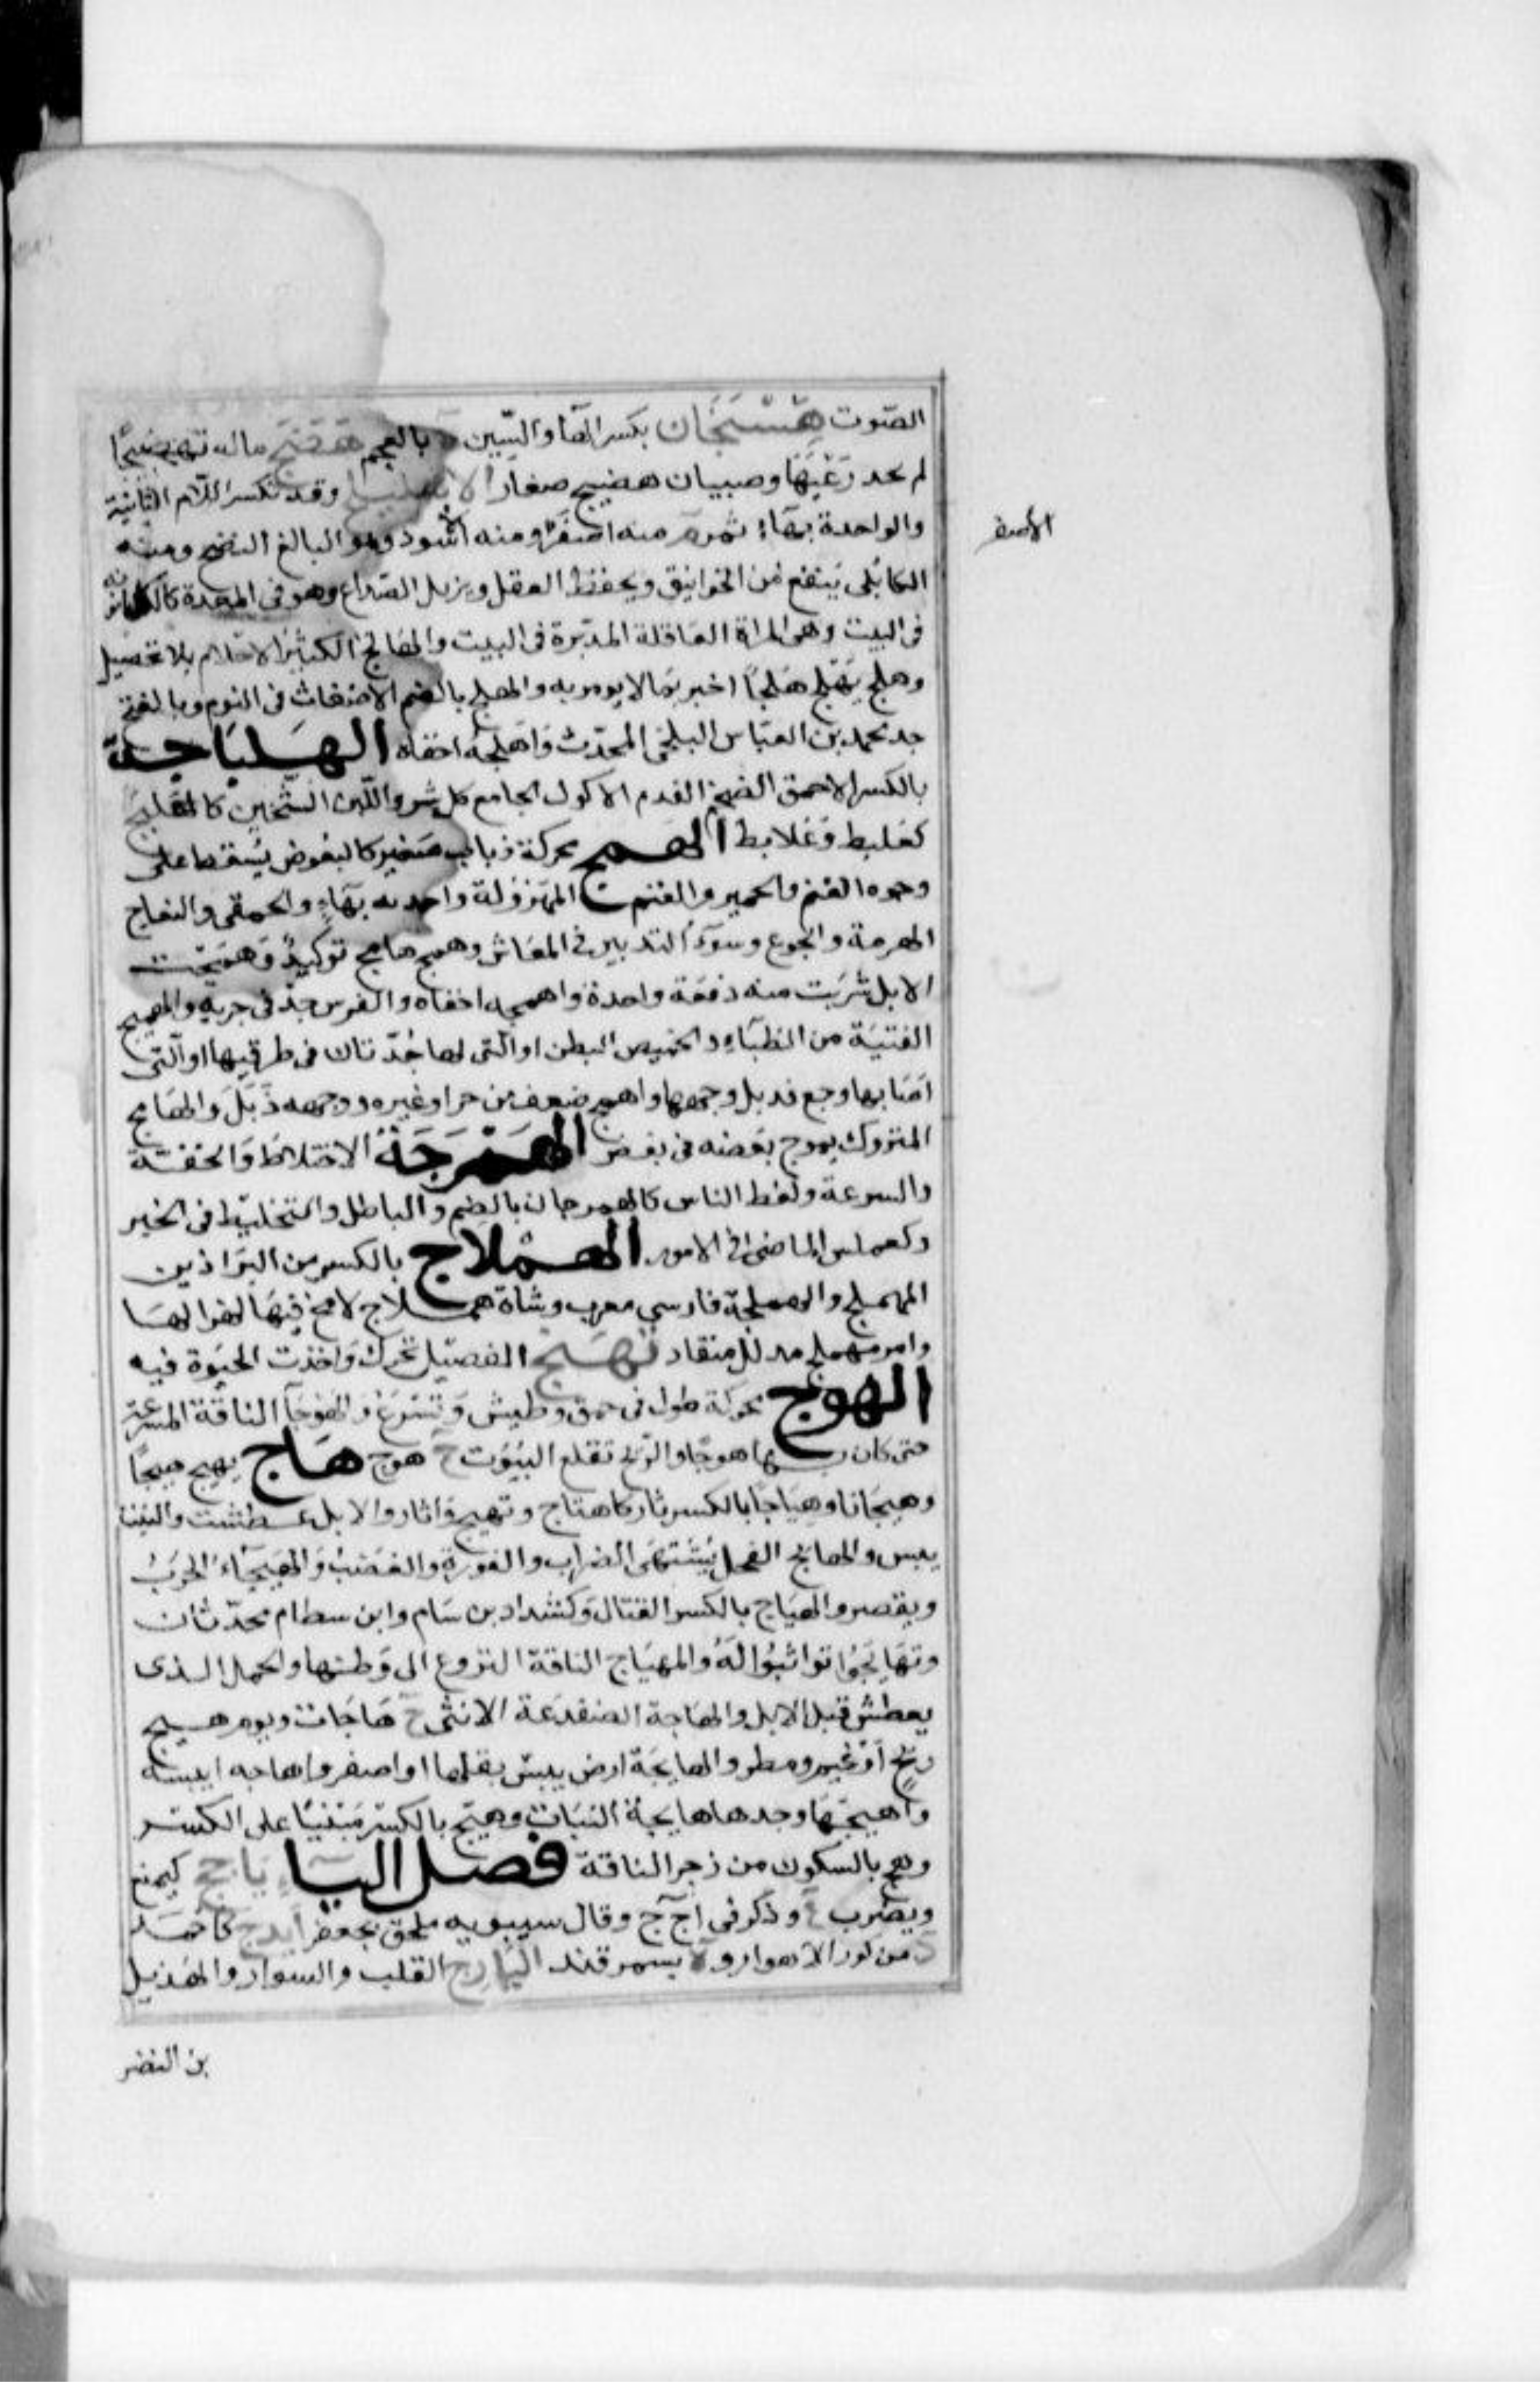 الصّوت هِسِّنْجَان بكسر الهاء والسّين ة بالعجم هَضَّجَ ماله تهضيجًا
لم يجد رَعْيَهَا وصبيان هضيج صغار الاهليلج وقد تكسر اللام الثانية
والواحدة بهاء ثمر م منه اصفر ومنه اسود وهو البالغ النضج ومنه
الأصفر
الكابُلى ينفع من الخوانيق ويحفظ العقل ويزيل الصداع وهو فى المعدة كالكدبانونة
فى البيت وهى المراة العاقلة المدبّرة فى البيت والهالج الكثير الاحلام بلا تحصيل
وهلج يَهْلِج هَلْجًا اخبر بما لا يومن به والهلج بالضم الاضغاث فى النوم وبالفتح
جد محمد بن العبّاس البلخى المحدّث واهلجه اخفاه الهِلْبَاجَة
بالكسر الاحمق الضخم الفدم الاكول الجامع كل شر واللبن الثخين كالهلبج
كعلبط وعلابط الهمج محركة ذباب صغير كالبعوض يسقط على
وجوه الغنم والحمير والغنم المهزولة واحدته بهاء والحمقى والنعاج
الهرمة والجوع وسوء التدبير فى المعاش وهمج هامج توكيد وهمجت
الابل شربت منه دفعة واحدة واهمجه اخفاه والفرس جد فى جريه والهميج
الفتيّة من الظباء والخميص البطن او التى لها جُدّتان فى طرقيها او التى
اصابها وجع فذبل وجهها واهمج ضعف من حر او غيره ووجهه ذَبَلَ والهامج
المتروك يموج بعضه فى بعض الهَمْرَجَةُ الاختلاط والخفّة
والسرعة ولغط الناس كالهمرجان بالضم والباطل والتخليط فى الخبر
وكعملس الماضى فى الامور الهِمْلاج بالكسر من البراذين
المهملج والهملجة فارسي معرب وشاة هملاج لا مخ فيها لهزالها
وامر مهملج مذلل منقاد تهنَّج الفصيل تحرك واخذت الحيوة فيه
الهوج محركة طول فى حمق وطيش وتسرع والهوجاء الناقة المسرعة
حتى كان بها هوجا والريح تقلع البيوت ج هوج هَاج يهيج هيجًا
وهيجانا وهِيَاجًا بالكسر ثار كاهتاج وتهيج واثار والابل عطشت والنبت
يبس والهايج الفحل يشتهى الضراب والفورة والغضب والهيجاء الحرب
ويقصر والهياج بالكسر القتال وكشداد بن سَام وابن بسطام محدّثان
وتهايجوا تواثبوا له والمهياج الناقة النزوع الى وطنها والجمل الذى
يعطش قبل الابل والهاجة الضفدعة الانثى ج هَاجَات ويوم هيج
ريح او غيم ومطر والهايجة ارض يبس بقلها او اصفر واهاجه ايبسه
واهيجتها وجدها هايجة النبات وهيج بالكسر مبنيا على الكسر
وهج بالسكون من زجر الناقة فصل اليَاء يَاجج كيمنع
ويضرب ع وذكر فى اج ج وقال سيبويه ملحق بجعفر ايذج كاحمد
د من كور الاهواز و ة بسمرقند اليَارَج القلب والسوار والهذيل
بن النضر